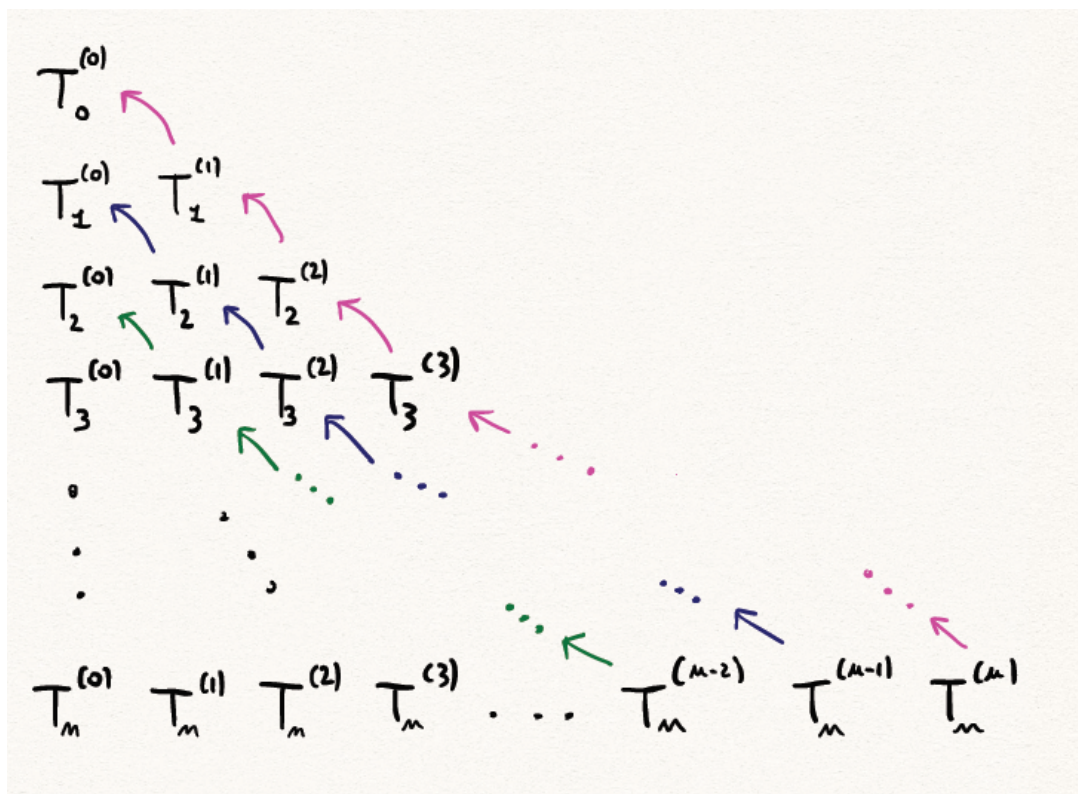 T_0^{(0)}
T_1^{(0)} T_1^{(1)}
T_2^{(0)} T_2^{(1)} T_2^{(2)}
T_3^{(0)} T_3^{(1)} T_3^{(2)} T_3^{(3)}
T_n^{(0)} T_n^{(1)} T_n^{(2)} T_n^{(3)} ... T_n^{(n-2)} T_n^{(n-1)} T_n^{(n)}